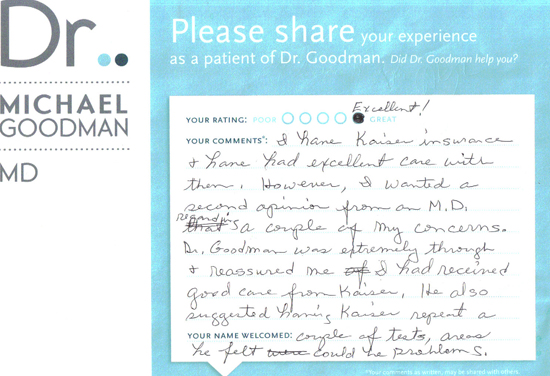 Dr.
MICHAEL
GOODMAN
MD
Please share your experience
as a patient of Dr. Goodman. Did Dr. Goodman help you?
Excellent!
YOUR RATING: POOR GREAT
YOUR COMMENTS*: I have Kaiser insurance
& have had excellent care with
them. However, I wanted a
second opinion from an M.D.
regarding
that's a couple of my concerns.
Dr. Goodman was extremely through
& reassured me of I had received
good care from Kaiser. He also
suggested having Kaiser repeat a
YOUR NAME WELCOMED: couple of tests, areas
he felt were could be problems.
*Your comments as written, may be shared with others.